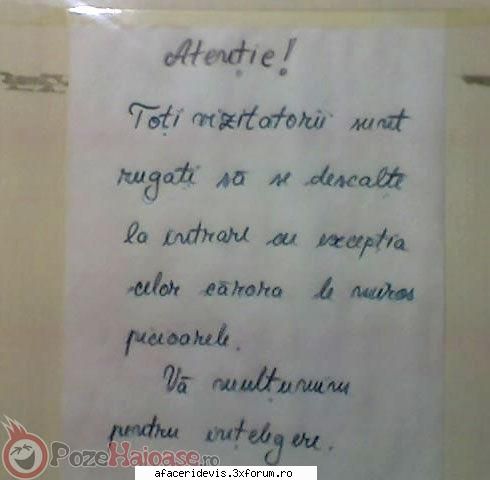 Atenție!
Toți vizitatorii sunt
rugați să se descalțe
la intrare cu excepția
celor cărora le miros
picioarele.
Vă mulțumim
pentru înțelegere.
PozeHaioase.ro
afaceridevis.3xforum.ro